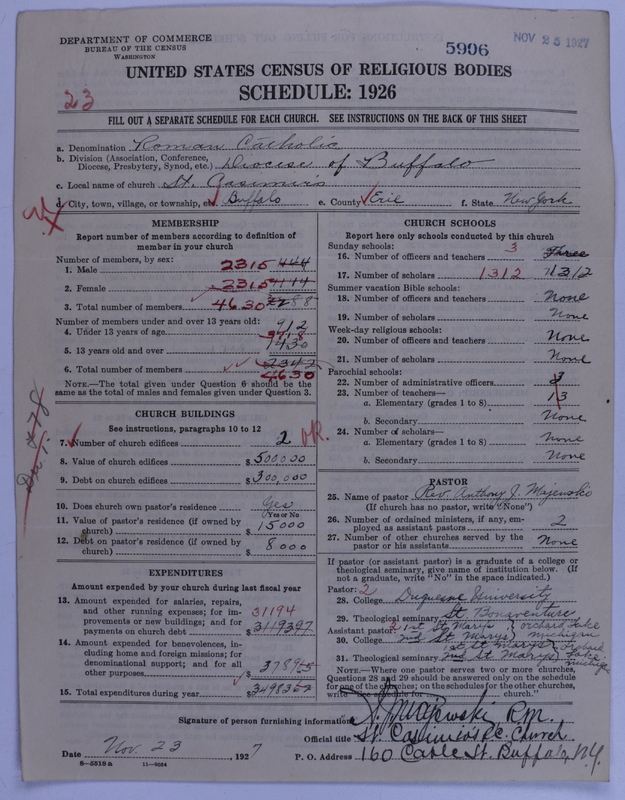 DEPARTMENT OF COMMERCE
BUREAU OF THE CENSUS
WASHINGTON
5906
NOV 25 1927
UNITED STATES CENSUS OF RELIGIOUS BODIES
SCHEDULE: 1926
23
FILL OUT A SEPARATE SCHEDULE FOR EACH CHURCH. SEE INSTRUCTIONS ON THE BACK OF THIS SHEET
a. Denomination Roman Catholic
b. Division (Association, Conference,
Diocese, Presbytery, Synod, etc.) Diocese of Buffalo
c. Local name of church St. Casimirs
d. City, town, village, or township, etc. Buffalo e. County Erie f. State New York
MEMBERSHIP
Report number of members according to definition of
member in your church
Number of members, by sex:
1. Male 2315 444
2. Female 2315
3. Total number of members 4630
Number of members under and over 13 years old:
4. Under 13 years of age 912
5. 13 years old and over
6. Total number of members 2342
4630
NOTE.—The total given under Question 6 should be the
same as the total of males and females given under Question 3.
CHURCH BUILDINGS
See instructions, paragraphs 10 to 12
7. Number of church edifices 2
8. Value of church edifices $500,000
9. Debt on church edifices $300,000
10. Does church own pastor's residence? Yes
(Yes or No)
11. Value of pastor's residence (if owned by
church) $15000
12. Debt on pastor's residence (if owned by
church) $8000
EXPENDITURES
Amount expended by your church during last fiscal year
13. Amount expended for salaries, repairs,
and other running expenses; for im-
provements or new buildings; and for
payments on church debt 31194
$3119397
14. Amount expended for benevolences, in-
cluding home and foreign missions; for
denominational support; and for all
other purposes $
15. Total expenditures during year $
CHURCH SCHOOLS
Report here only schools conducted by this church
Sunday schools:
16. Number of officers and teachers 3 Three
17. Number of scholars 1312 1312
Summer vacation Bible schools:
18. Number of officers and teachers None
19. Number of scholars None
Week-day religious schools:
20. Number of officers and teachers None
21. Number of scholars None
Parochial schools:
22. Number of administrative officers 3
23. Number of teachers—
a. Elementary (grades 1 to 8) 13
b. Secondary None
24. Number of scholars—
a. Elementary (grades 1 to 8) None
b. Secondary None
PASTOR
25. Name of pastor Rev. Anthony J. Majewski
(If church has no pastor, write "None")
26. Number of ordained ministers, if any, em-
ployed as assistant pastors 2
27. Number of other churches served by the
pastor or his assistants None
If pastor (or assistant pastor) is a graduate of a college or
theological seminary, give name of institution below. (If
not a graduate, write "No" in the space indicated.)
Pastor: 2
28. College Duquesne University
29. Theological seminary St Bonaventure
Assistant pastor: 2 1st St Marys } Orchard Lake
30. College 2nd St Marys } Michigan
1st St Marys } Orchard
31. Theological seminary 2nd St Marys } Lake Michigan
NOTE.—Where one pastor serves two or more churches,
Questions 28 and 29 should be answered only on the schedule
for one of the churches; on the schedules for the other churches,
write "See schedule for church."
Signature of person furnishing information A. J. Majewski, P.R.M.
Official title St. Casimirs R.C. Church
Date Nov. 23, 1927 P. O. Address 160 Cable St. Buffalo, N.Y.
8-5518a 11-9084